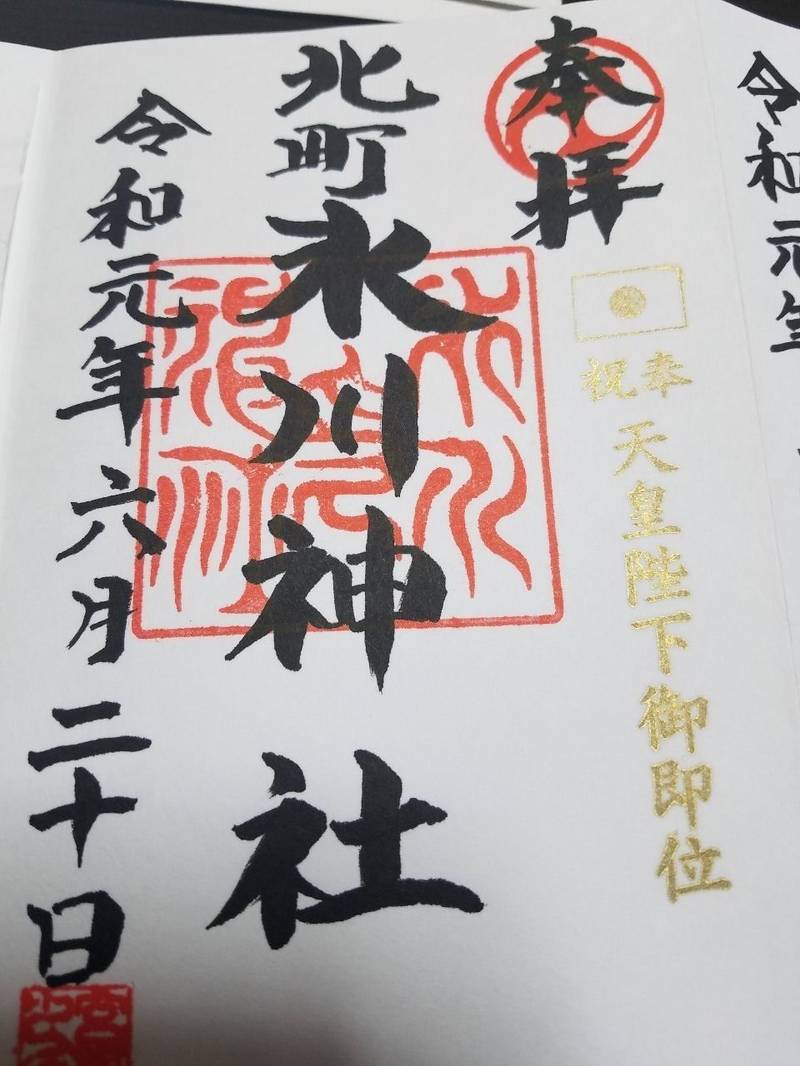 奉拝
奉祝
天皇陛下御即位
北町氷川神社
令和元年六月二十日
令和元年